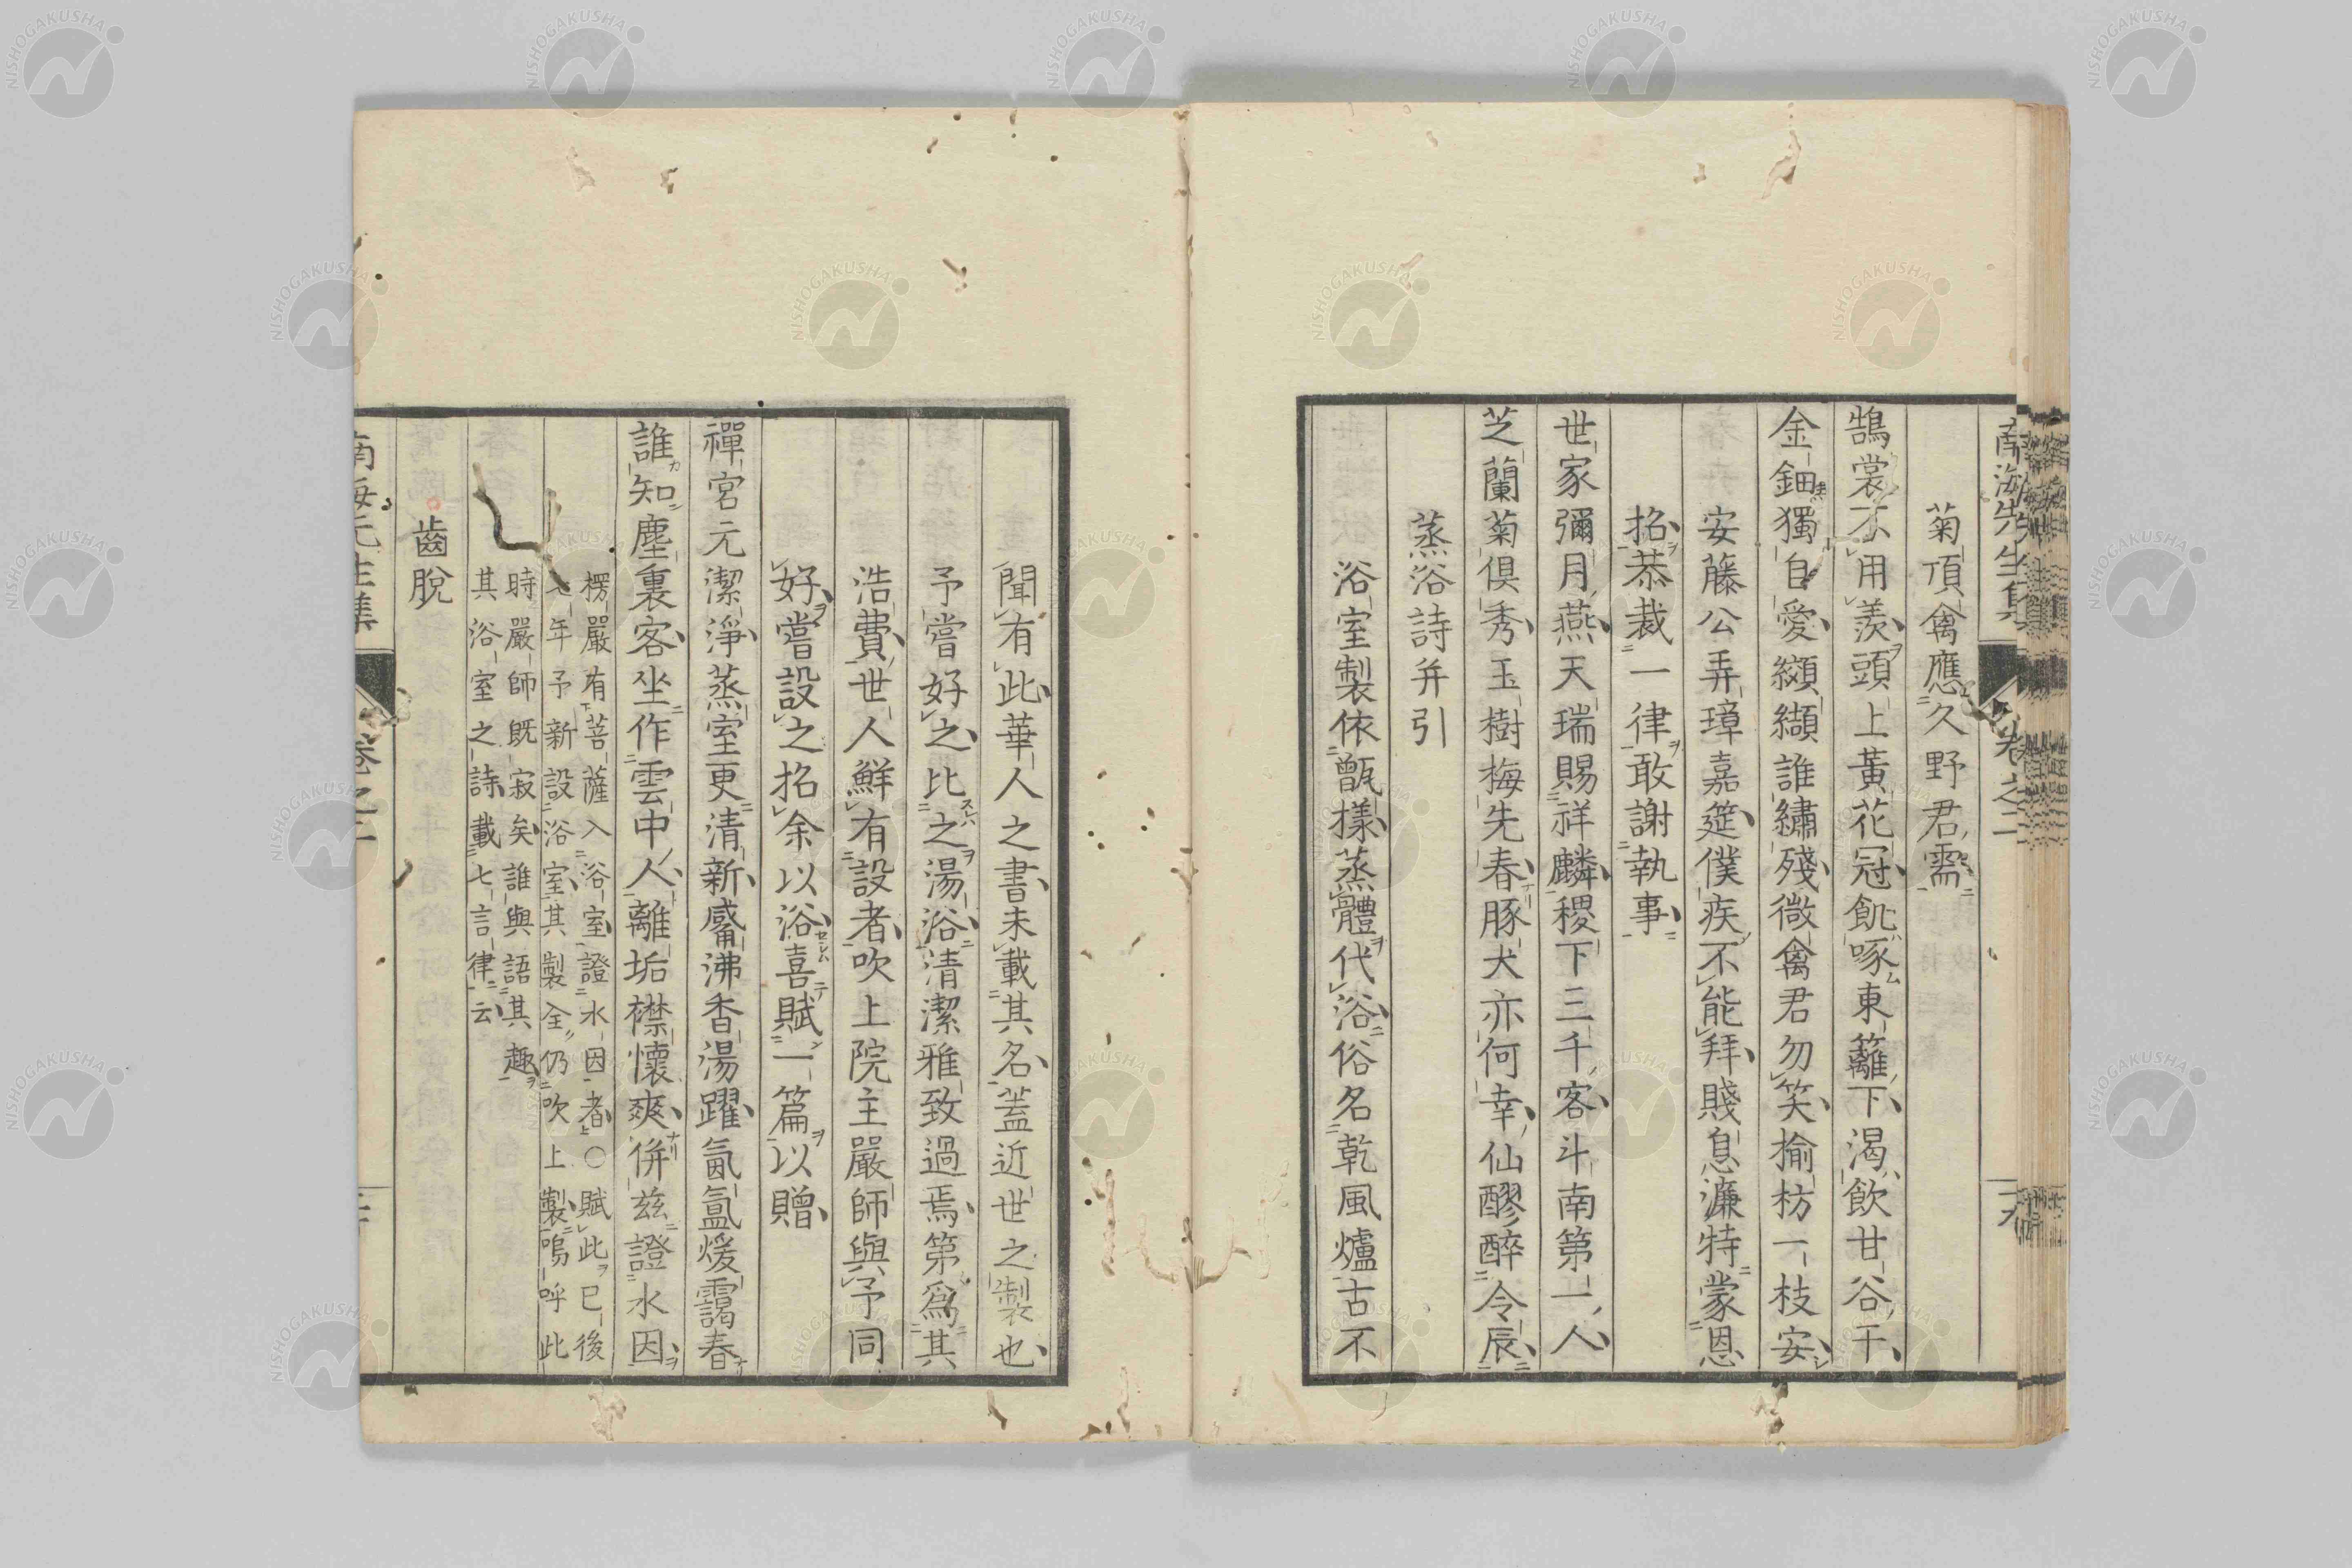 南海先生集
卷之二
菊頂禽應久野君需
鵠裳不用羨頭上黃花冠飢啄東籬下渴飲甘谷干
金鈿獨自愛纈纈誰繡殘微禽君勿笑揄枋一枝安
安藤公弄璋嘉筵僕疾不能拜賤息濂特蒙恩
招恭裁一律敢謝執事
世家彌月燕天瑞賜祥麟稷下三千客斗南第一人
芝蘭菊俱秀玉樹梅先春豚犬亦何幸仙醪醉令辰
蒸浴詩并引
浴室製依甑樣蒸體代浴俗名乾風爐古不
聞有此華人之書未載其名蓋近世之製也
予嘗好之比之湯浴清潔雅致過焉第為其
浩費世人鮮有設者吹上院主嚴師與予同
好嘗設之招余以浴喜賦一篇以贈
禪宮元潔淨蒸室更清新觱沸香湯躍氤氳煖靄春
誰知塵裏客坐作雲中人離垢襟懷爽併茲證水因
楞嚴有菩薩入浴室證水因者○賦此已後
七年予新設浴室其製全仍吹上製嗚呼此
時嚴師既寂矣誰與語其趣
其浴室之詩載七言律云
齒脫
南海先生集
卷之二